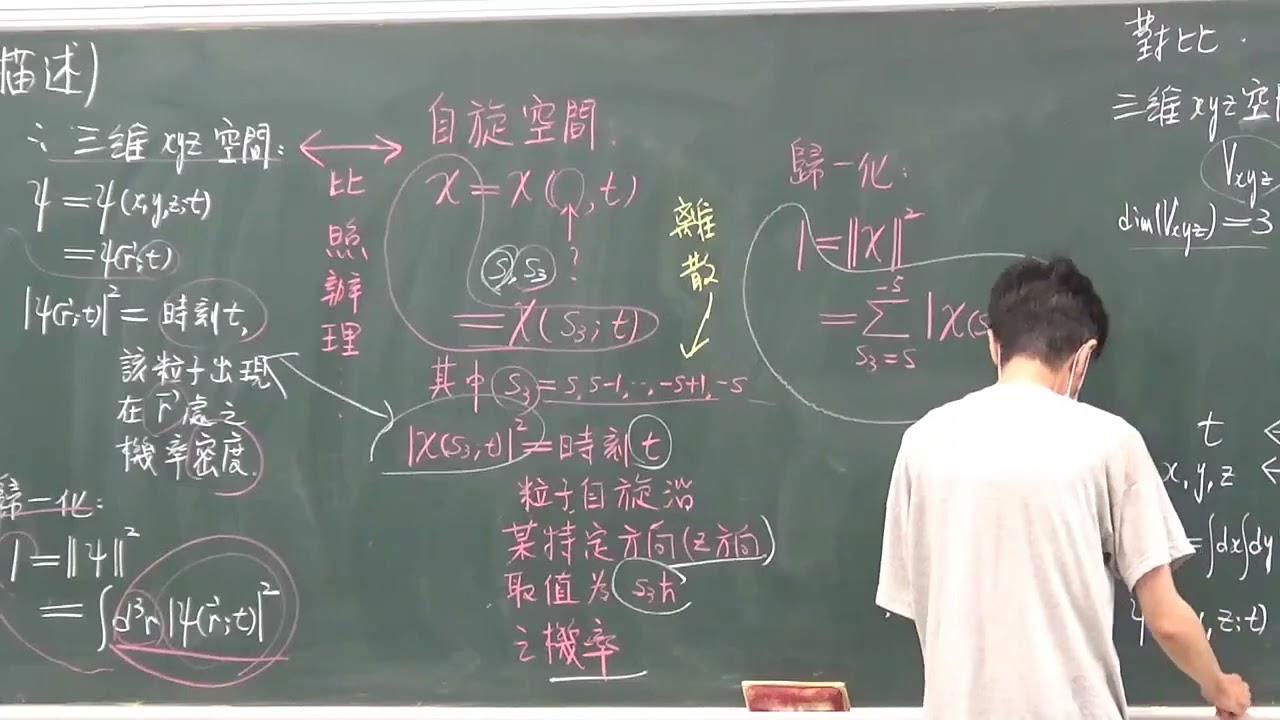 描述)
三維 xyz 空間:
ψ = ψ(x,y,z;t)
= ψ(r⃗;t)
|ψ(r⃗;t)|² = 時刻 t,
該粒子出現
在 r⃗ 處之
機率密度.
歸一化:
1 = ||ψ||²
= ∫d³r |ψ(r⃗;t)|²
比
照
辦
理
自旋空間
χ = χ( , t)
S, S₃ ?
= χ(S₃;t)
其中 S₃ = s, s-1, ..., -s+1, -s
|χ(S₃;t)|² = 時刻 t
粒子自旋沿
某特定方向(z方向)
取值為 S₃ħ
之機率
離
散
歸一化:
1 = ||χ||²
= Σ |χ(S
-s
S₃=s
對比.
三維 xyz 空間
Vxyz
dim(Vxyz) = 3
t ←
x, y, z ←
= ∫dx∫dy
, z;t)